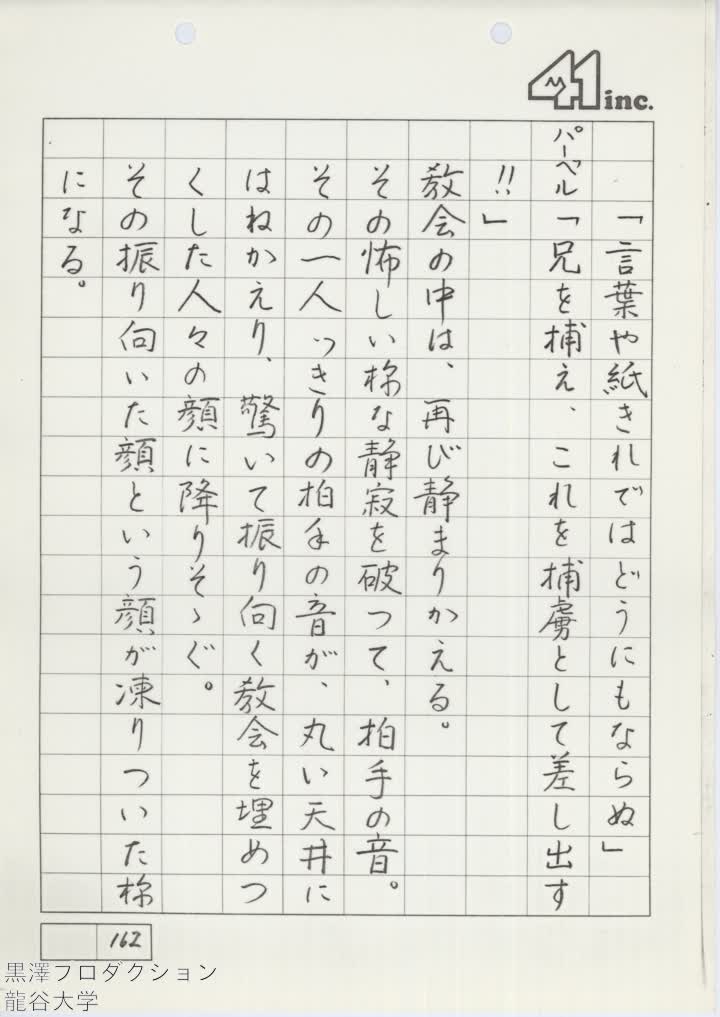 41 inc.
「言葉や紙きれではどうにもならぬ」
パーベル「兄を捕え、これを捕虜として差し出す
!!」
教会の中は、再び静まりかえる。
その怖しい様な静寂を破つて、拍手の音。
その一人っきりの拍手の音が、丸い天井に
はねかえり、驚いて振り向く教会を埋めつ
くした人々の顔に降りそゝぐ。
その振り向いた顔という顔が凍りついた様
になる。
162
黒澤プロダクション
龍谷大学